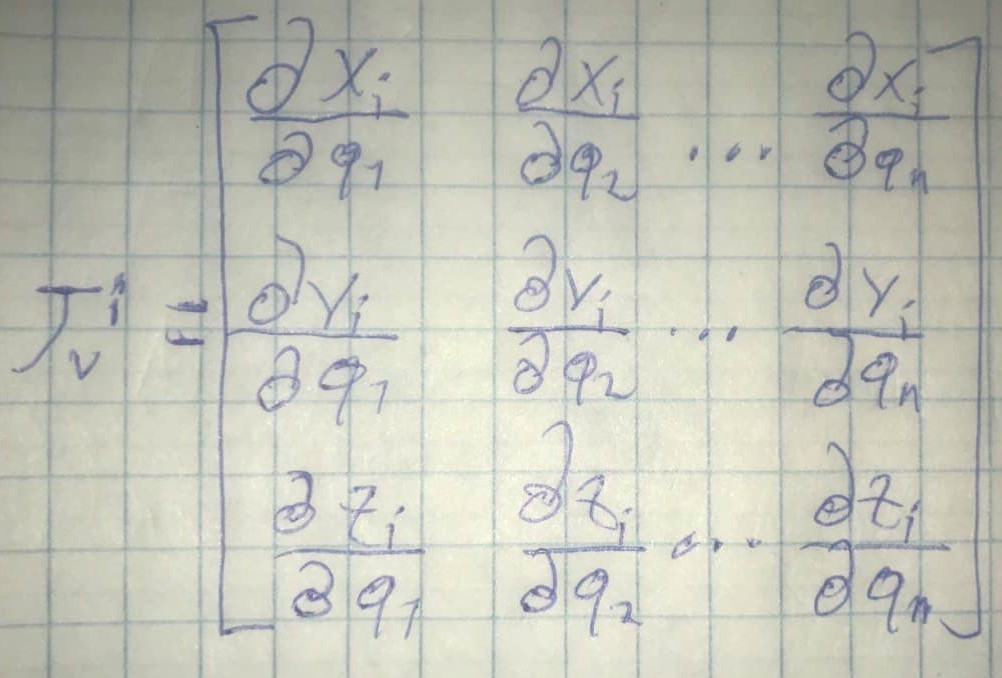 ∂x_i/∂q_1 ∂x_i/∂q_2 ... ∂x_i/∂q_n
J_v^i = ∂y_i/∂q_1 ∂y_i/∂q_2 ... ∂y_i/∂q_n
∂z_i/∂q_1 ∂z_i/∂q_2 ... ∂z_i/∂q_n